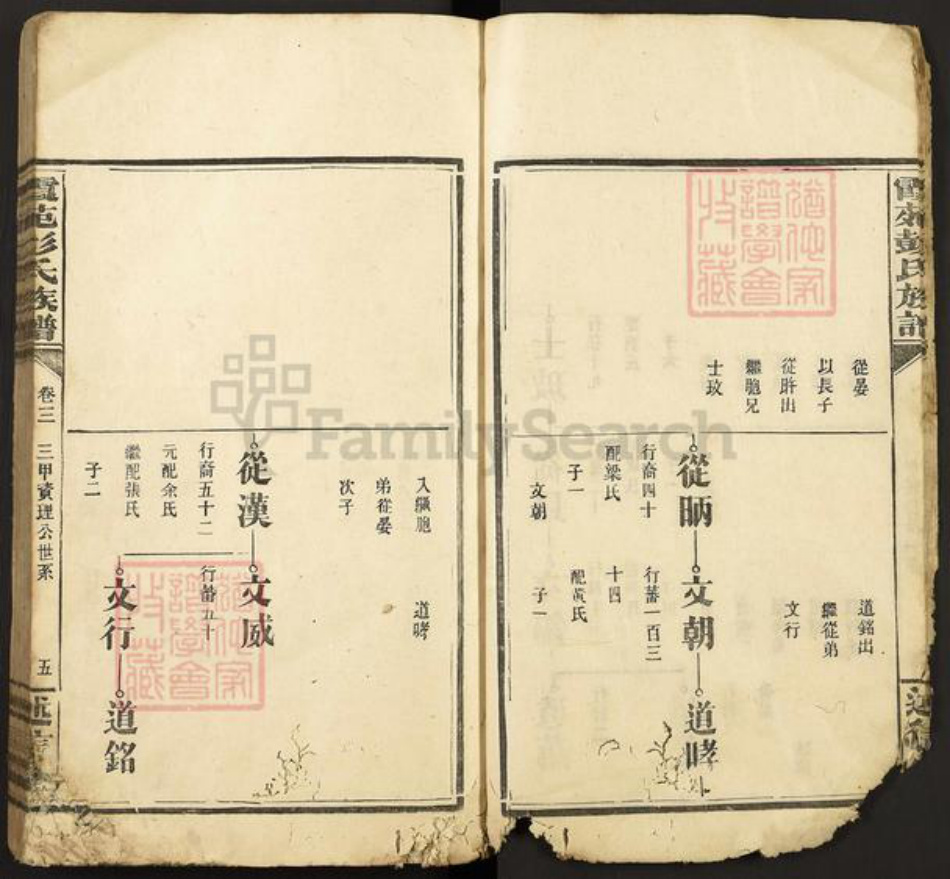 霞苑彭氏族譜
從晏
以長子
從昞出
繼胞兄
士玟
道銘出
繼從弟
文行
從昞
行裔四十
配梁氏
子一
文朝
文朝
行蕃一百三
十四
配黃氏
子一
道哮
入繼胞
弟從晏
次子
道哮
從漢
行裔五十二
元配余氏
繼配張氏
子二
文威
行蕃五十
文行
道銘
霞苑彭氏族譜
卷三
三甲資理公世系
五
述古
譜學會
收藏
譜學會
收藏
FamilySearch